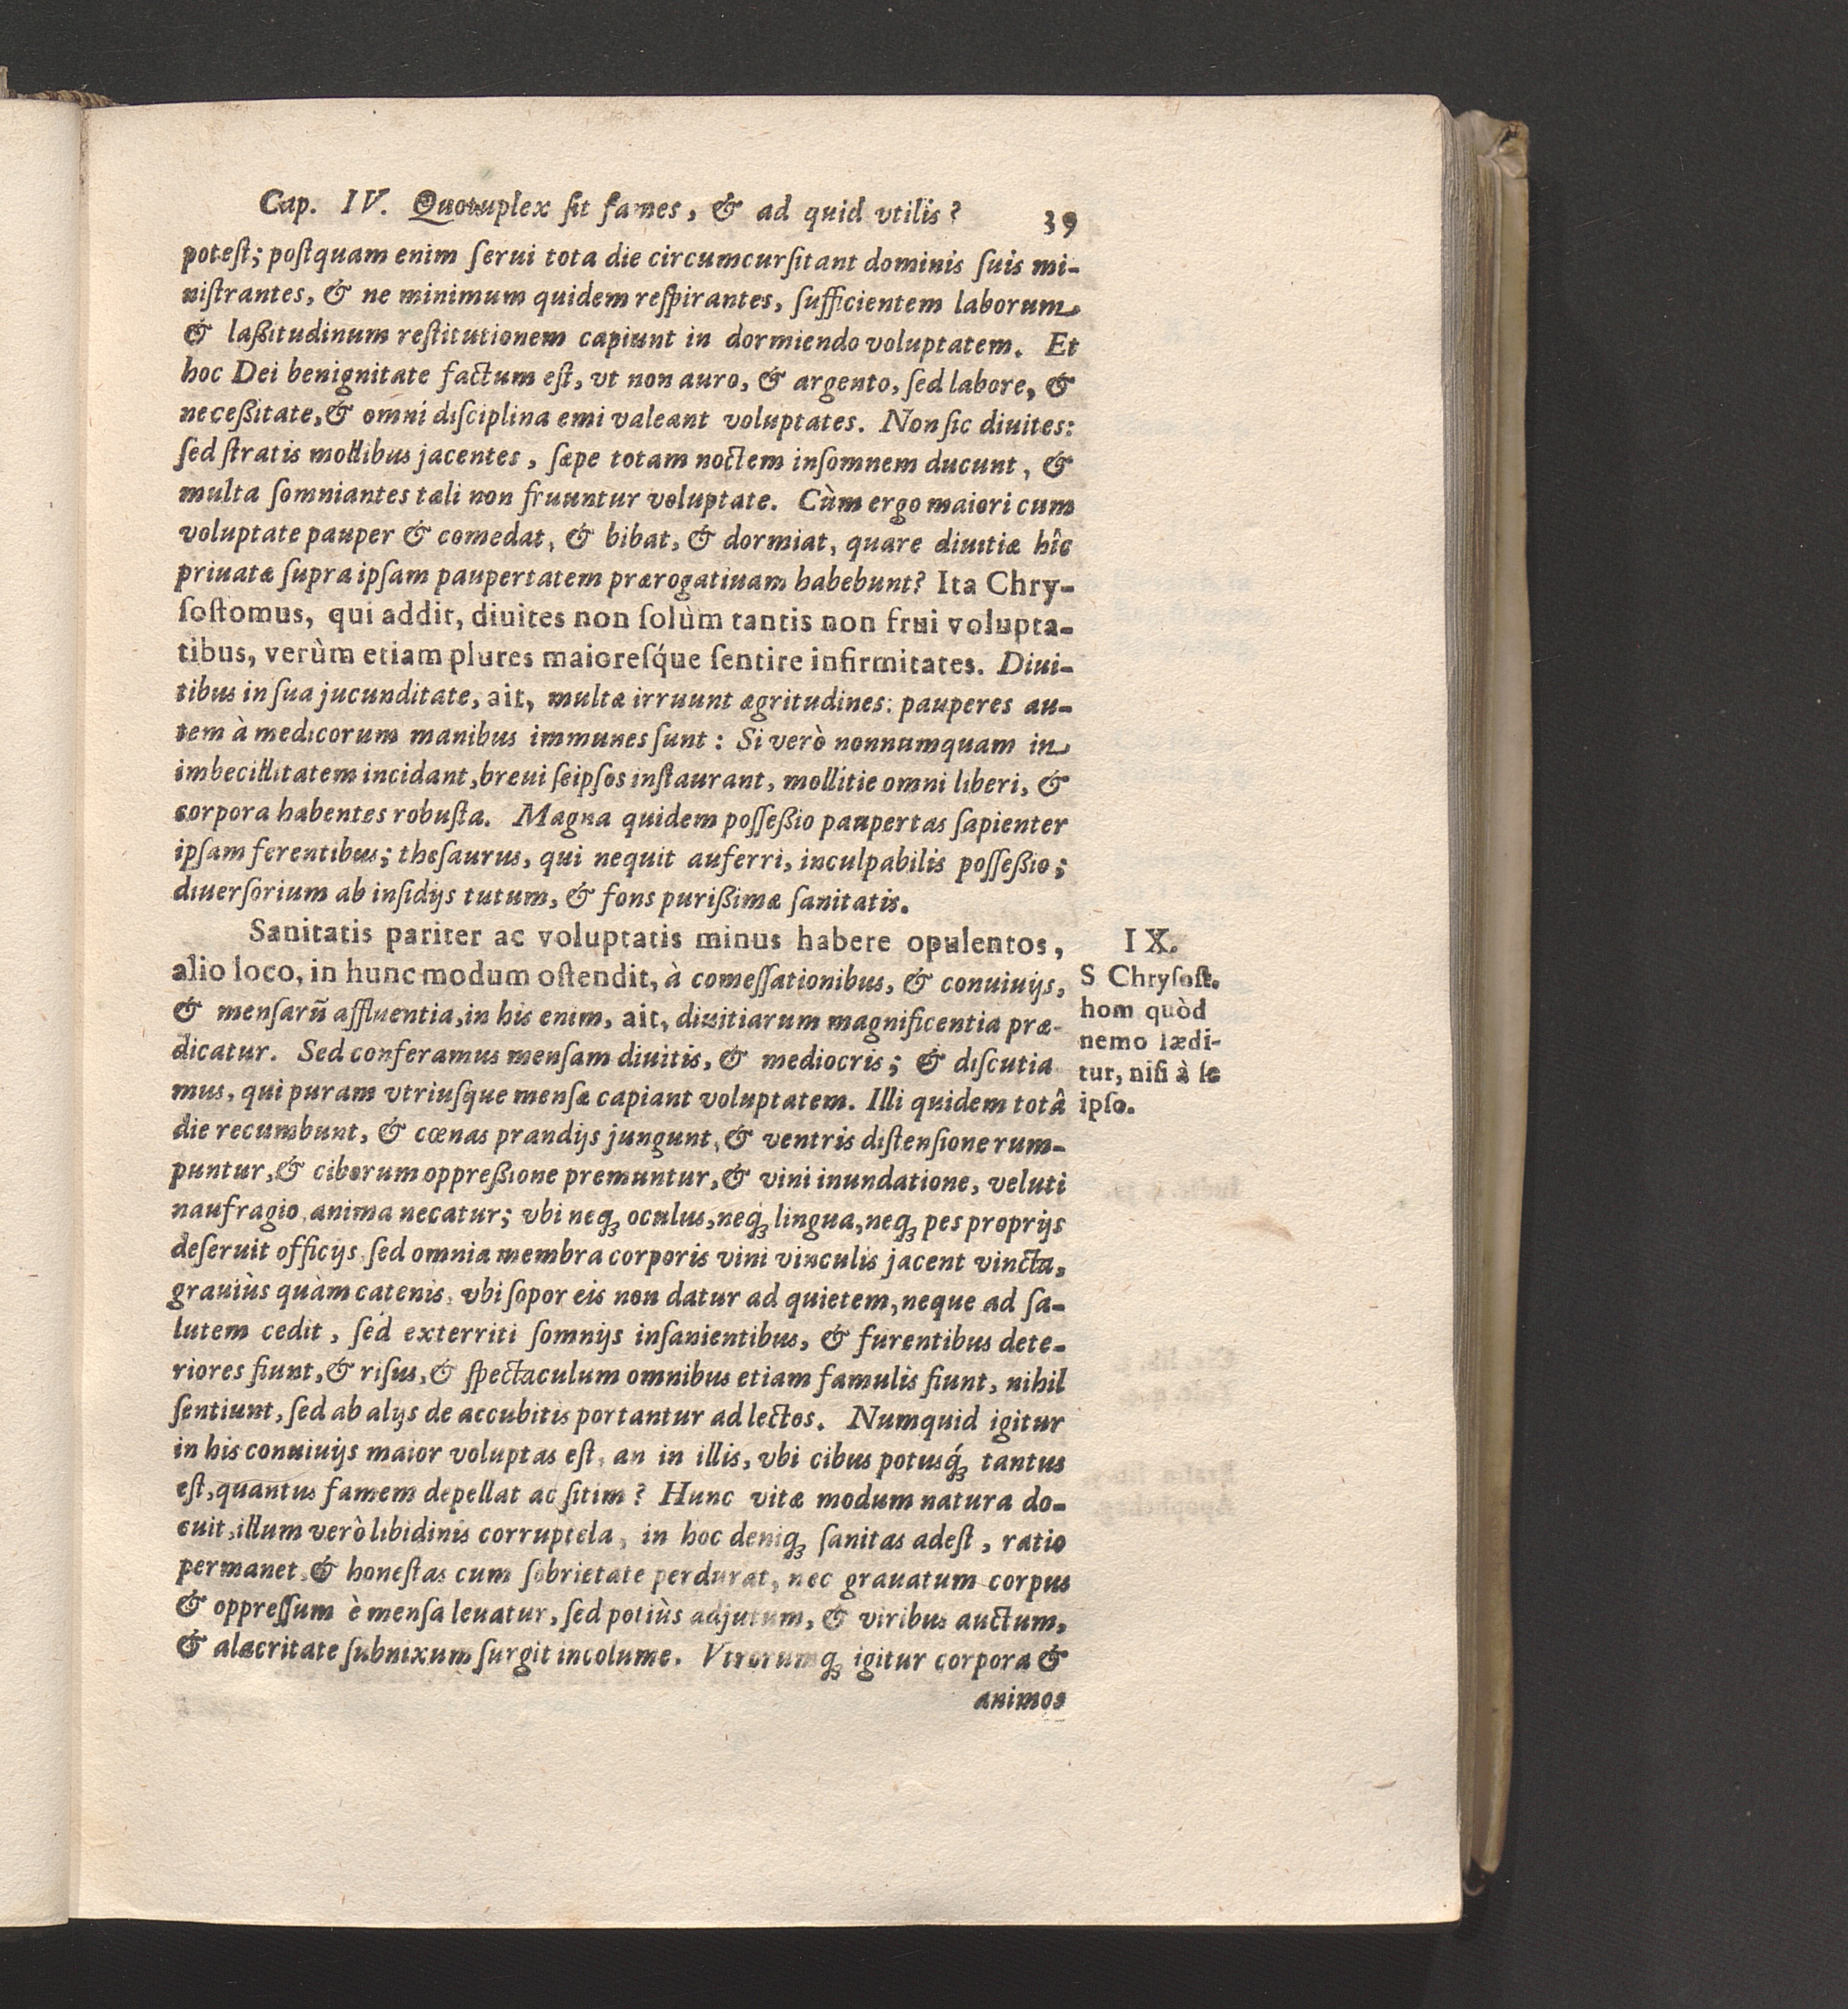 Cap. IV. Quotuplex ſit fames, & ad quid vtilis? 39
poteſt; poſtquam enim ſerui tota die circumcurſitant dominis ſuis mi-
niſtrantes, & ne minimum quidem reſpirantes, ſufficientem laborum
& laßitudinum reſtitutionem capiunt in dormiendo voluptatem. Et
hoc Dei benignitate factum eſt, vt non auro, & argento, ſed labore, &
neceßitate, & omni diſciplina emi valeant voluptates. Non ſic diuites:
ſed ſtratis mollibus jacentes, ſæpe totam noctem inſomnem ducunt, &
multa ſomniantes tali non fruuntur voluptate. Cùm ergo maiori cum
voluptate pauper & comedat, & bibat, & dormiat, quare diuitiæ hîc
priuatæ ſupra ipſam paupertatem prærogatiuam habebunt? Ita Chry-
ſoſtomus, qui addit, diuites non ſolùm tantis non frui volupta-
tibus, verùm etiam plures maioreſq́ue ſentire infirmitates. Diui-
tibus in ſua jucunditate, ait, multæ irruunt ægritudines: pauperes au-
tem à medicorum manibus immunes ſunt: Si verò nonnumquam in
imbecillitatem incidant, breui ſeipſos inſtaurant, mollitie omni liberi, &
corpora habentes robuſta. Magna quidem poſſeßio paupertas ſapienter
ipſam ferentibus; theſaurus, qui nequit auferri, inculpabilis poſſeßio;
diuerſorium ab inſidijs tutum, & fons purißimæ ſanitatis.
Sanitatis pariter ac voluptatis minus habere opulentos,
alio loco, in hunc modum oſtendit, à comeſſationibus, & conuiuijs,
& menſarũ affluentia, in his enim, ait, diuitiarum magnificentia præ-
dicatur. Sed conferamus menſam diuitis, & mediocris; & diſcutia
mus, qui puram vtriuſque menſæ capiant voluptatem. Illi quidem totâ
die recumbunt, & cœnas prandijs jungunt, & ventris diſtenſione rum-
puntur, & ciborum oppreßione premuntur, & vini inundatione, veluti
naufragio anima necatur; vbi neq́ꝫ oculus, neq́ꝫ lingua, neq́ꝫ pes proprijs
deſeruit officijs ſed omnia membra corporis vini vinculis jacent vincta,
grauiùs quàm catenis, vbi ſopor eis non datur ad quietem, neque ad ſa-
lutem cedit, ſed exterriti ſomnijs inſanientibus, & furentibus dete-
riores fiunt, & riſus, & ſpectaculum omnibus etiam famulis fiunt, nihil
ſentiunt, ſed ab alijs de accubitis portantur ad lectos. Numquid igitur
in his conuiuijs maior voluptas eſt, an in illis, vbi cibus potusq́ꝫ tantus
eſt, quantus famem depellat ac ſitim? Hunc vitæ modum natura do-
cuit, illum verò libidinis corruptela, in hoc deniqꝫ ſanitas adeſt, ratio
permanet, & honeſtas cum ſobrietate perdurat, nec grauatum corpus
& oppreſſum è menſa leuatur, ſed potiùs adjutum, & viribus auctum,
& alacritate ſubnixum ſurgit incolume. Vtrorumqꝫ igitur corpora &
animos
IX.
S Chryſoſt.
hom quòd
nemo lædi-
tur, niſi à ſe
ipſo.